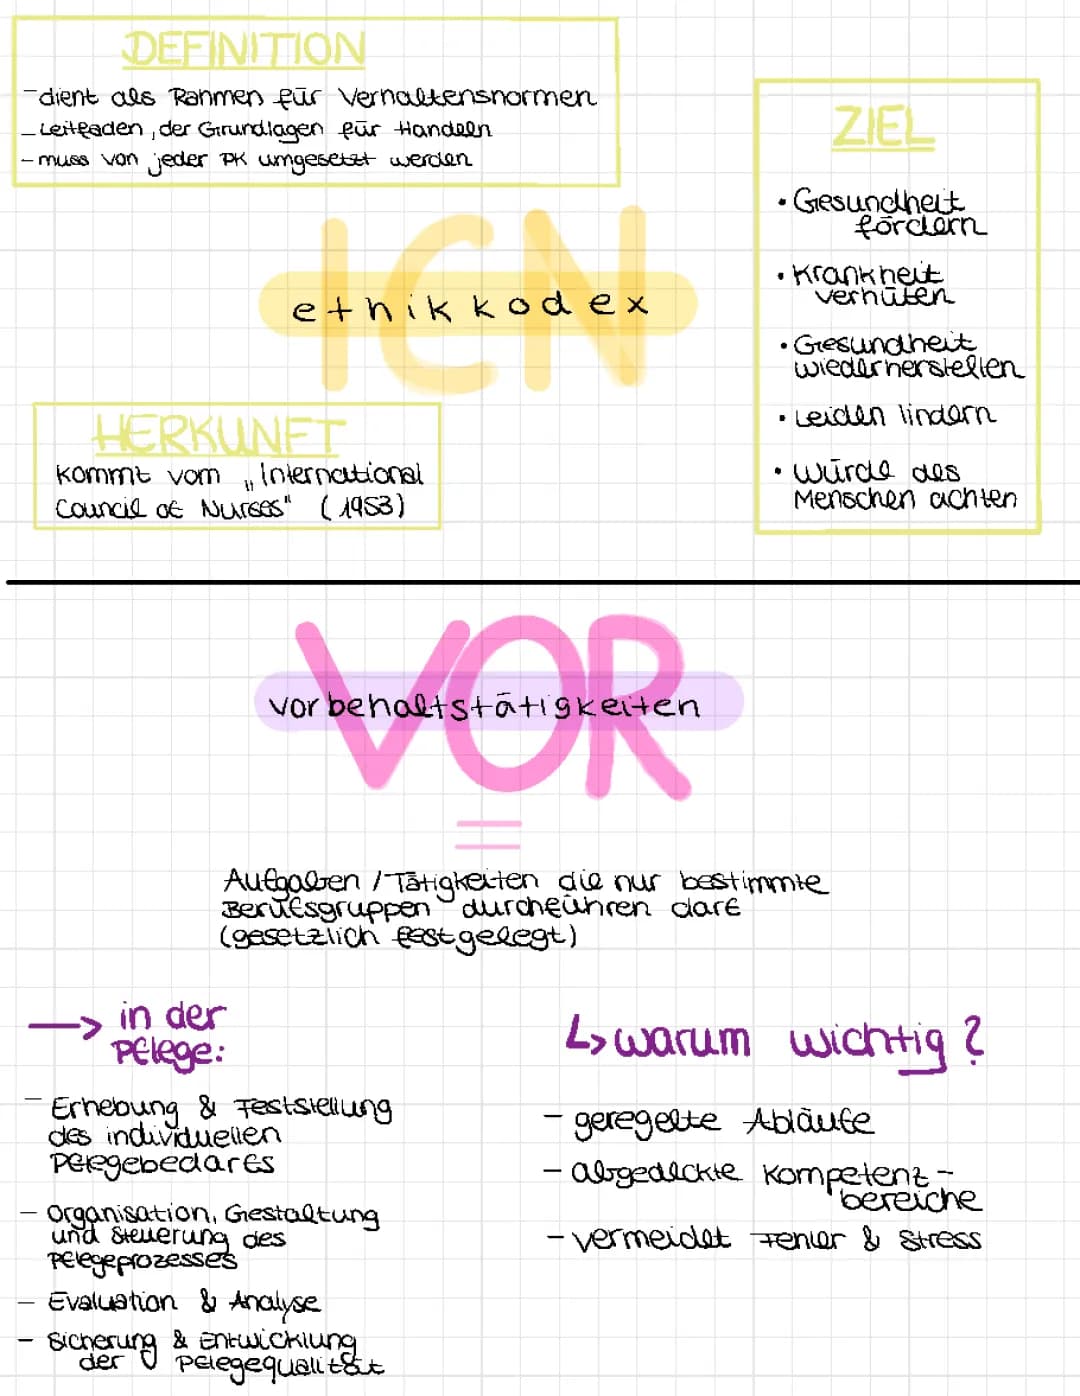 DEFINITION
- dient als Rahmen für Verhaltensnormen
- Leitfaden, der Grundlagen für Handeln
- muss von jeder PK umgesetzt werden
ICN
ethikkodex
HERKUNFT
kommt vom „International
Council of Nurses" (1953)
ZIEL
• Gesundheit
fördern
• Krankheit
verhüten
• Gesundheit
wiederherstellen
• Leiden lindern
• Würde des
Menschen achten
VOR
vorbehaltstätigkeiten
Aufgaben / Tätigkeiten die nur bestimmte
Berufsgruppen durchführen darf
(gesetzlich festgelegt)
→ in der
Pflege:
- Erhebung & Feststellung
des individuellen
Pflegebedarfs
- Organisation, Gestaltung
und Steuerung des
Pflegeprozesses
- Evaluation & Analyse
- Sicherung & Entwicklung
der Pflegequalität
↳ warum wichtig?
- geregelte Abläufe
- abgedeckte Kompetenz-
bereiche
- vermeidet Fehler & Stress